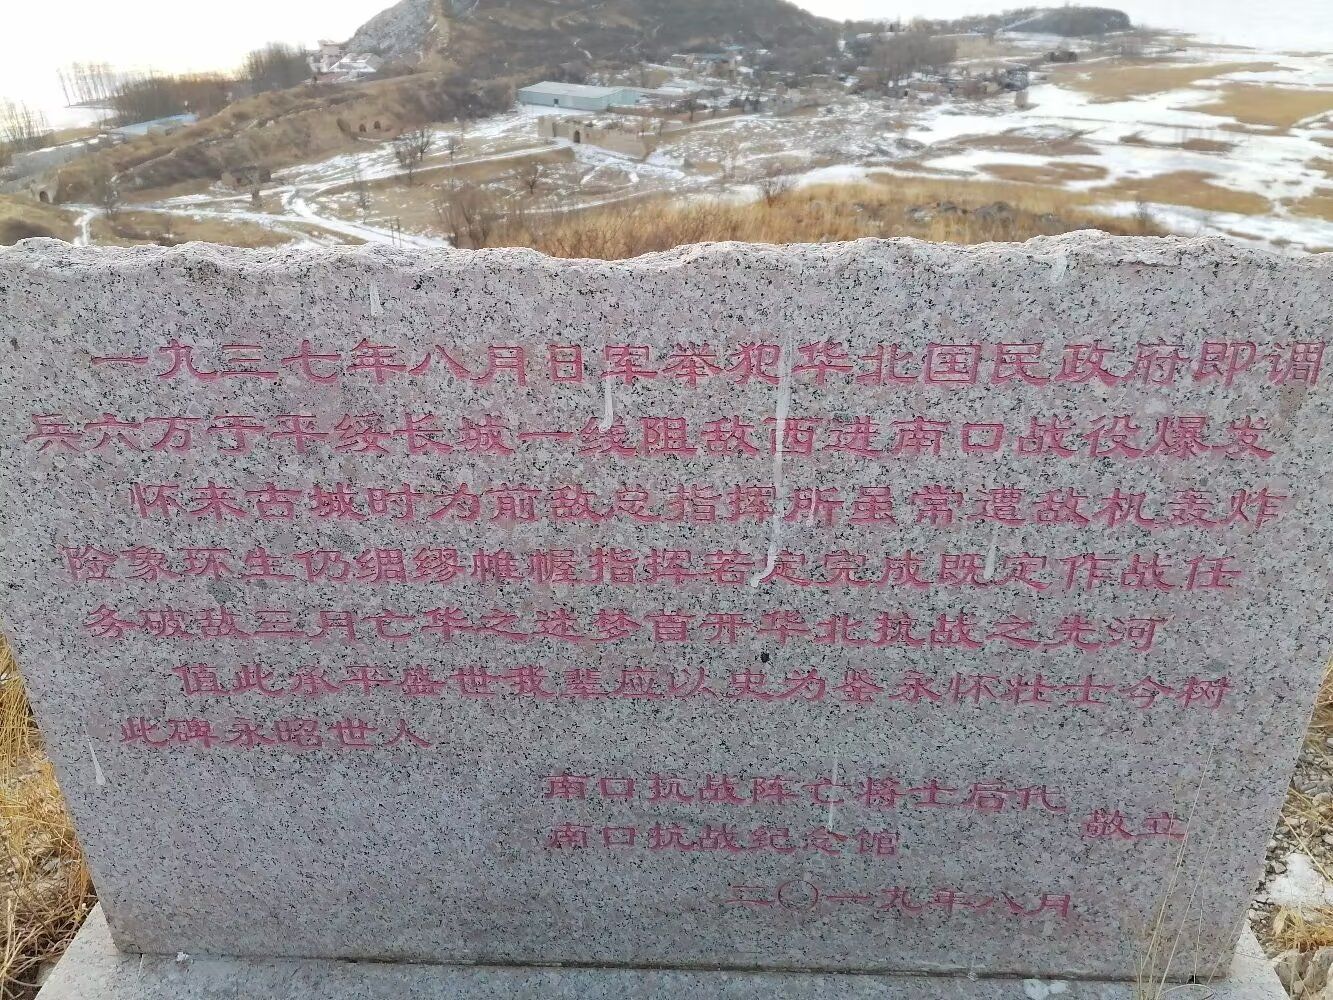 一九三七年八月日军举犯华北国民政府即调
兵六万于平绥长城一线阻敌西进南口战役爆发
怀来古城时为前敌总指挥所虽常遭敌机轰炸
险象环生仍绸缪帷幄指挥若定完成既定作战任
务破敌三月亡华之迷梦首开华北抗战之先河
值此承平盛世我辈应以史为鉴永怀壮士今树
此碑永昭世人
南口抗战阵亡将士后代
南口抗战纪念馆
敬立
二〇一九年八月